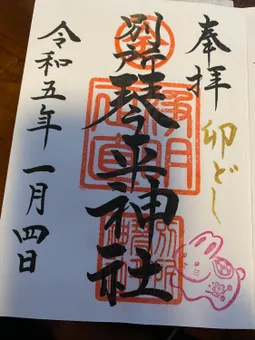 奉拝
卯どし
別所琴平神社
令和五年一月四日